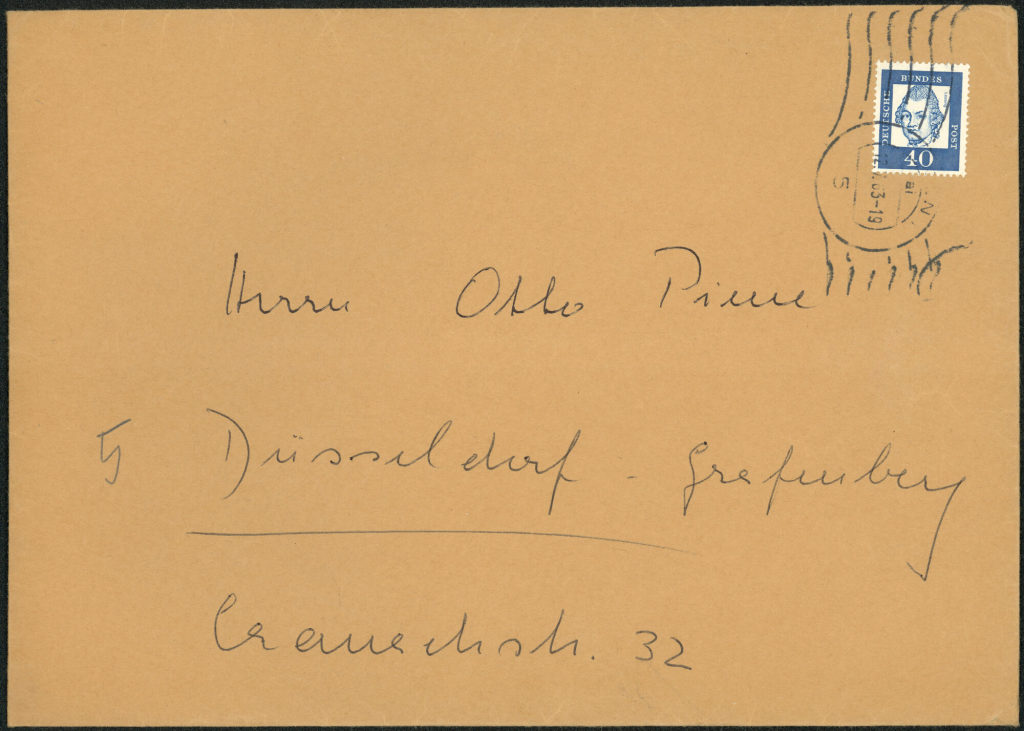 DEUTSCHE BUNDES POST
40
63-19
5
Herrn Otto Piene
5 Düsseldorf - Grafenberg
Cranachstr. 32